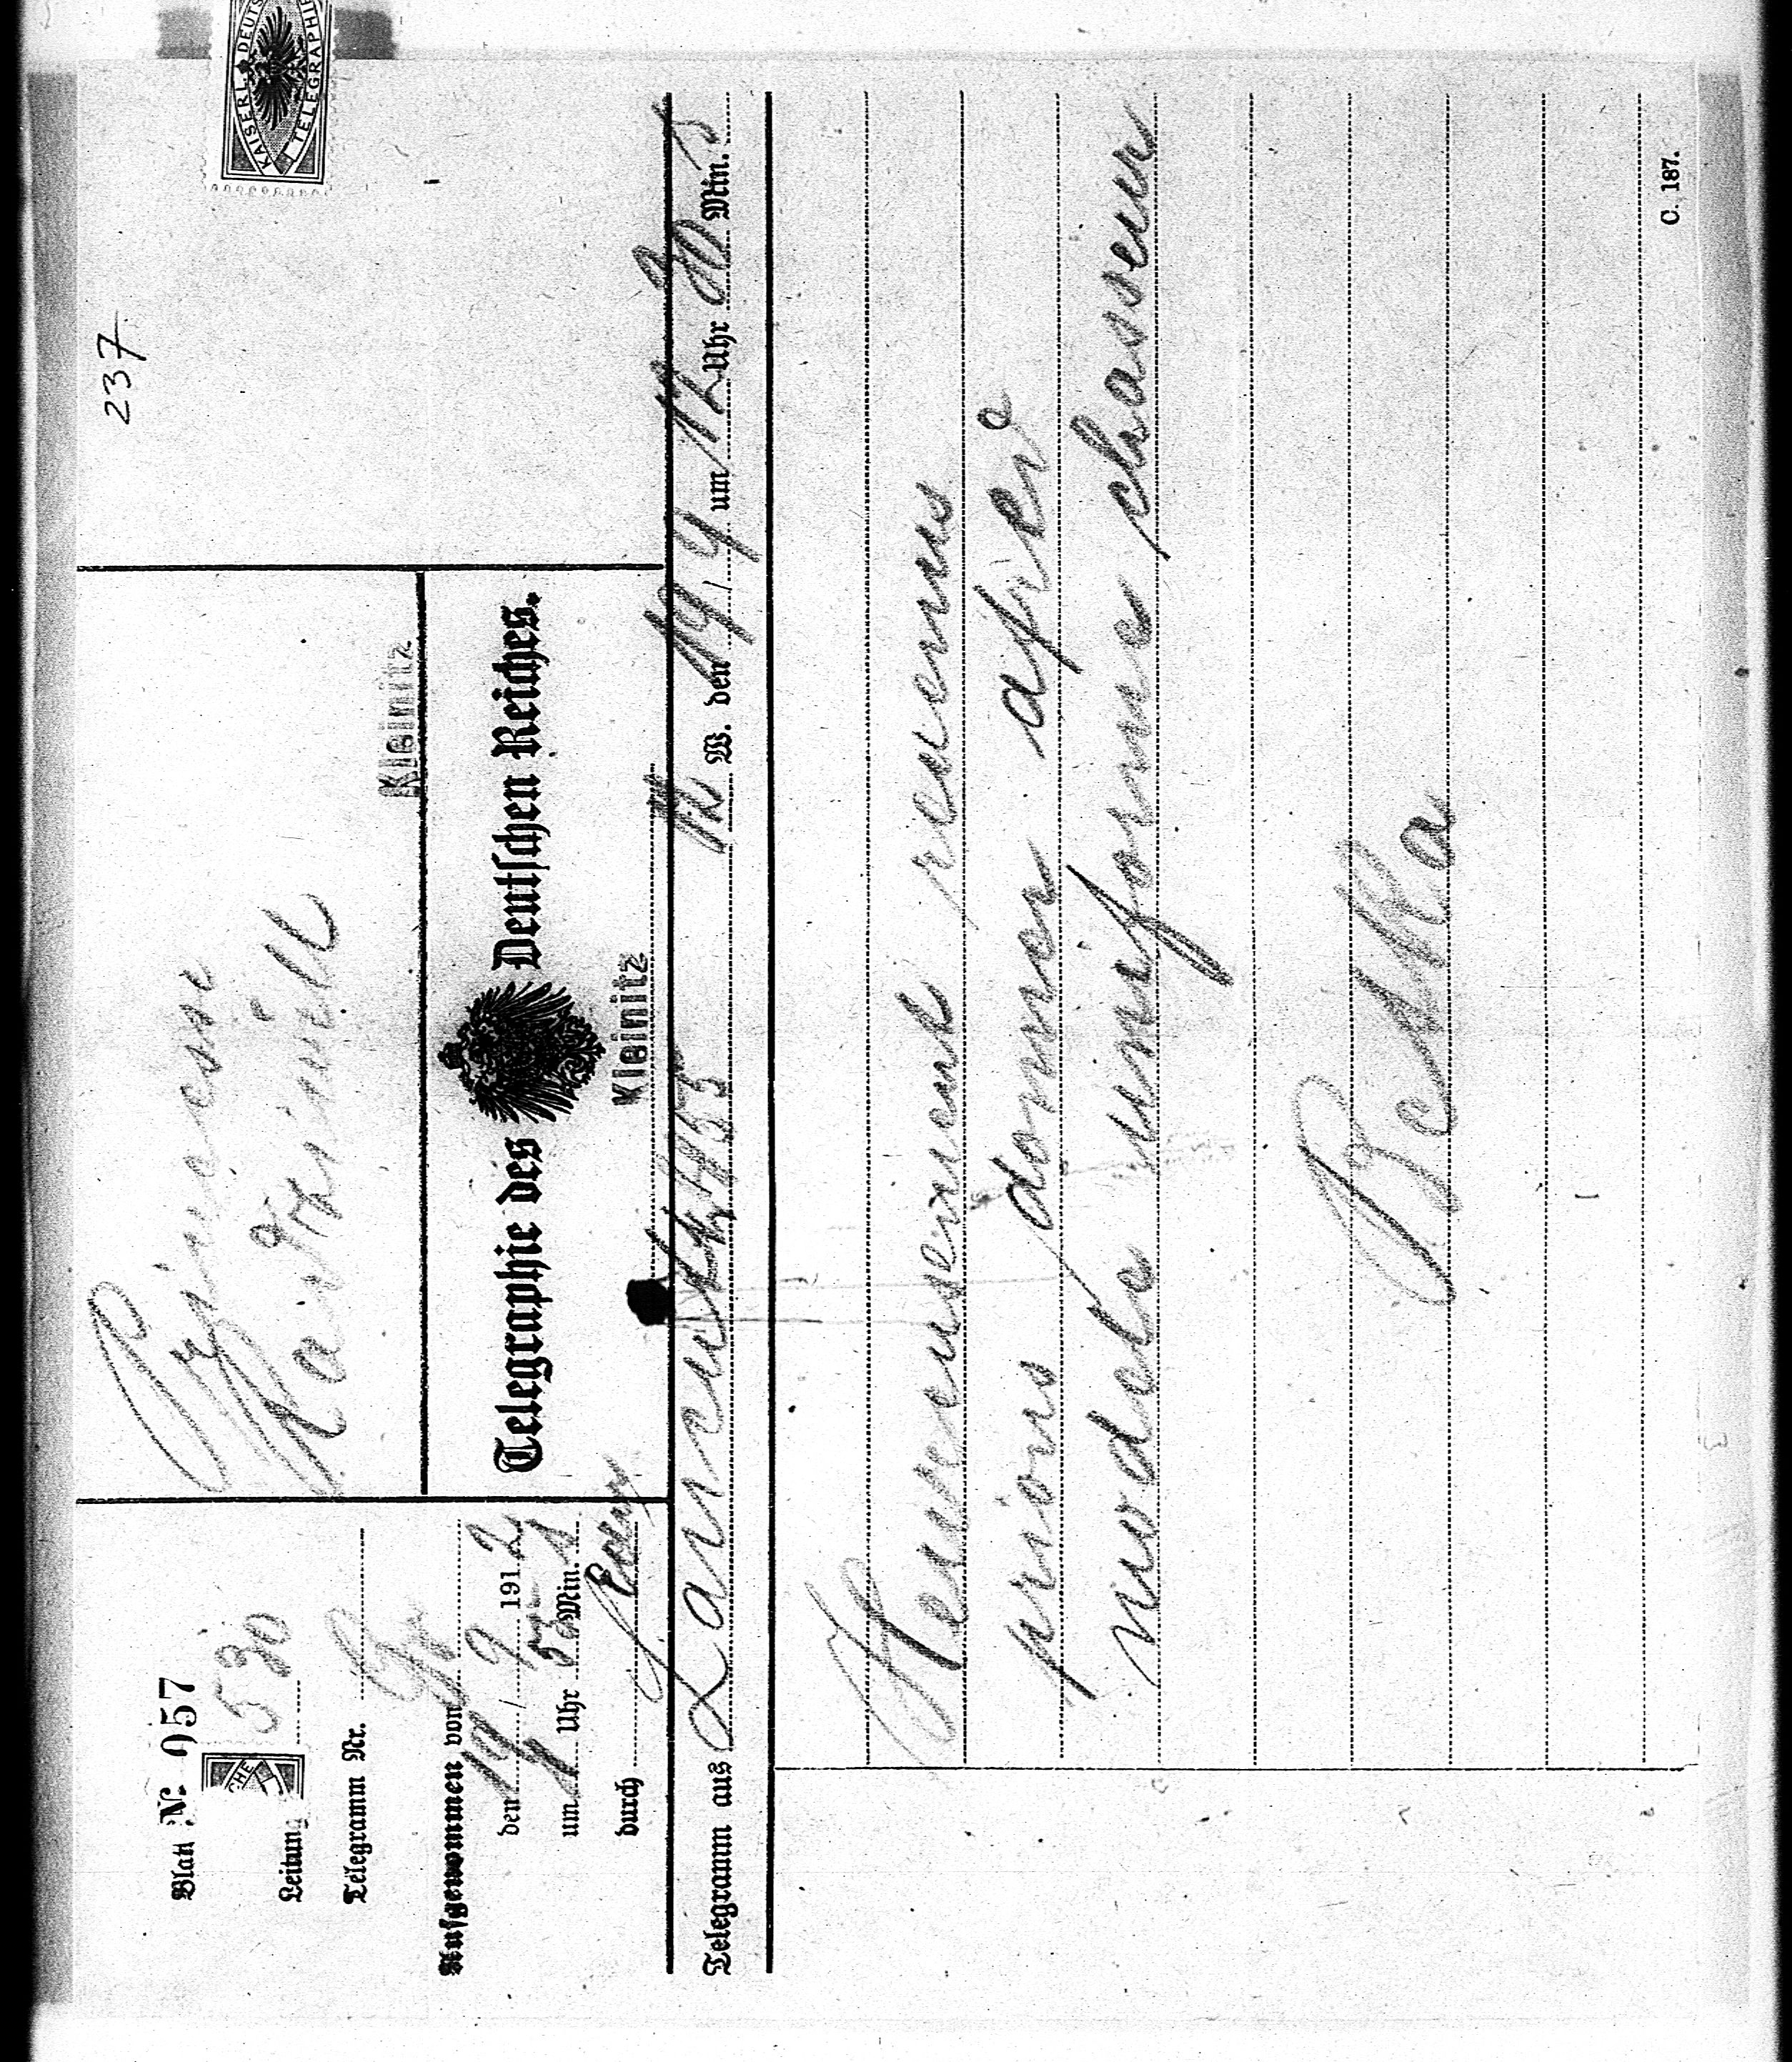 237
KAISERL. DEUTSCHE
TELEGRAPHIE
Blatt Nr. 957
Leitung 530
Telegramm Nr.
Aufgenommen von
den 19/9 1912
um 4 Uhr 55 Min.
durch
Princesse
Radziwill
Kleinitz
Telegraphie des Deutschen Reiches.
Kleinitz
Telegramm aus Lancut 455 W. den 19/9 um 12 Uhr 30 Min.
Heureusement revenus
prions donner afier
modele uniforme chasseur
Betka
C. 187.